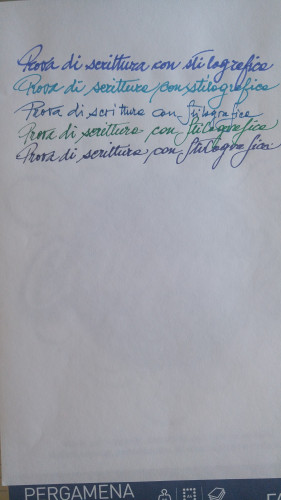 Prova di scrittura con stilografica
Prova di scrittura con stilografica
Prova di scrittura con stilografica
Prova di scrittura con stilografica
Prova di scrittura con stilografica
PERGAMENA